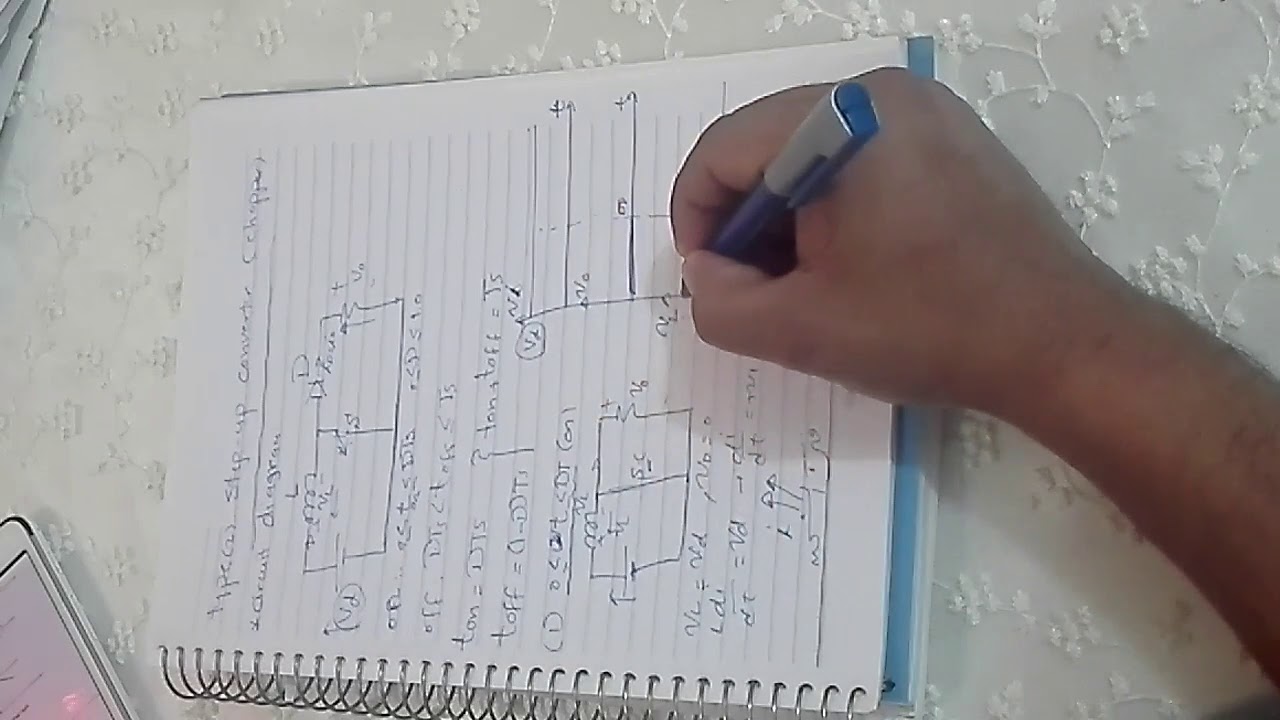 step-up converter (chopper)
circuit diagram
L D
VL S + Vo
Vd
on 0 ≤ t ≤ DTs 0 ≤ D ≤ 1.0
off. DTs < toff ≤ Ts
ton = DTs } ton + toff = Ts
toff = (1-D)Ts
(1) 0 < t ≤ DT (on)
VL + Vo
VL = Vd, Vo = 0
L di
dt = Vd → di
dt
Vd Vd
t
Vo
t
VL